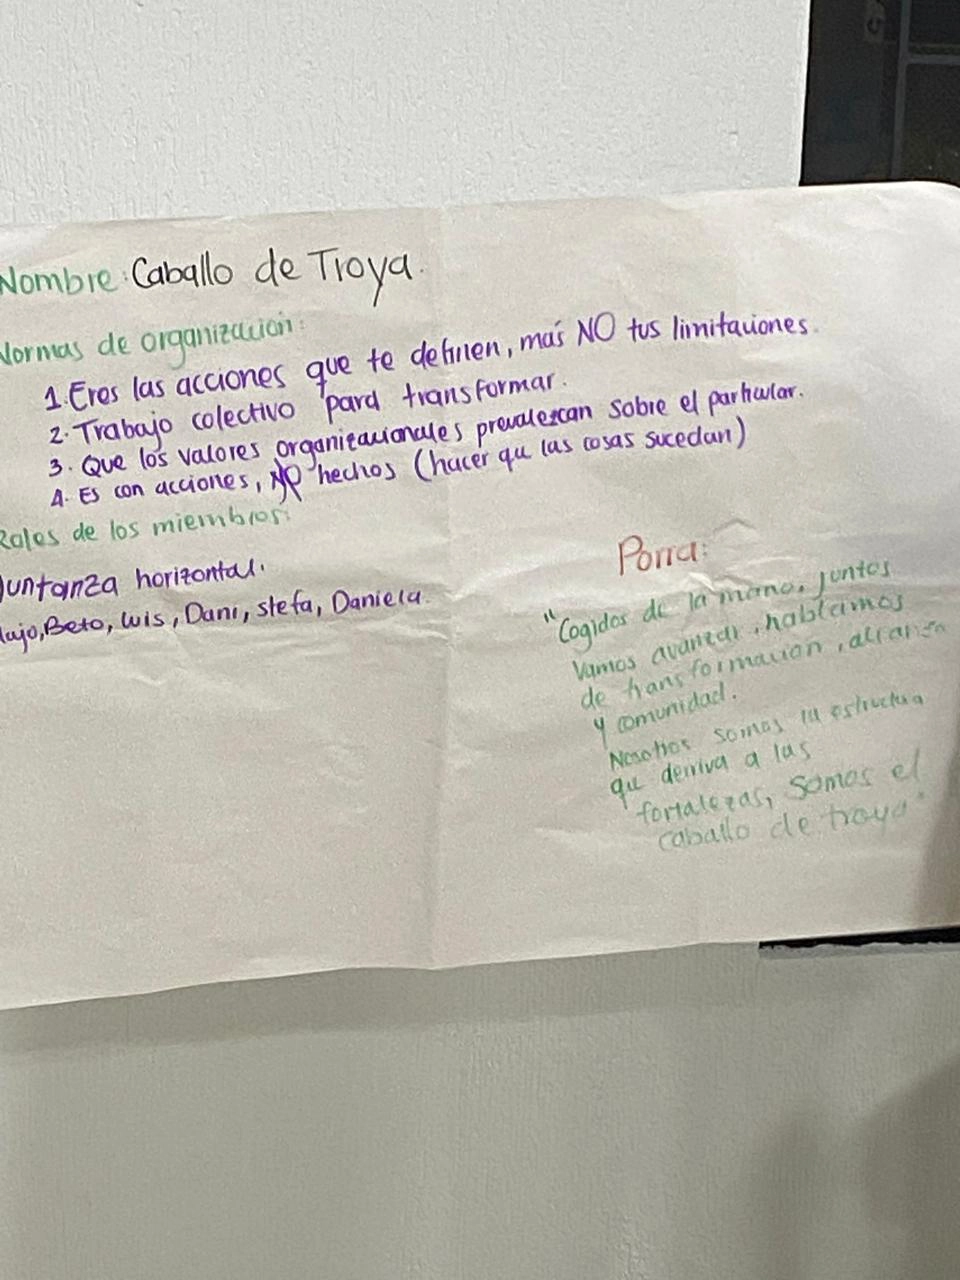 Nombre: Caballo de Troya.
Normas de organización:
1. Eres las acciones que te definen, más NO tus limitaciones.
2. Trabajo colectivo para transformar.
3. Que los valores organizacionales prevalezcan sobre el particular.
4. Es con acciones, NO hechos (hacer qu las cosas sucedan)
Roles de los miembros:
Juntanza horizontal.
Beto, Luis, Dani, stefa, Daniela
Porra:
"Cogidos de la mano, juntos
vamos avanzar, hablamos
de transformación, alianza
y comunidad.
Nosotros somos la estructura
qu derriva a las
fortalezas, somos el
caballo de troya"